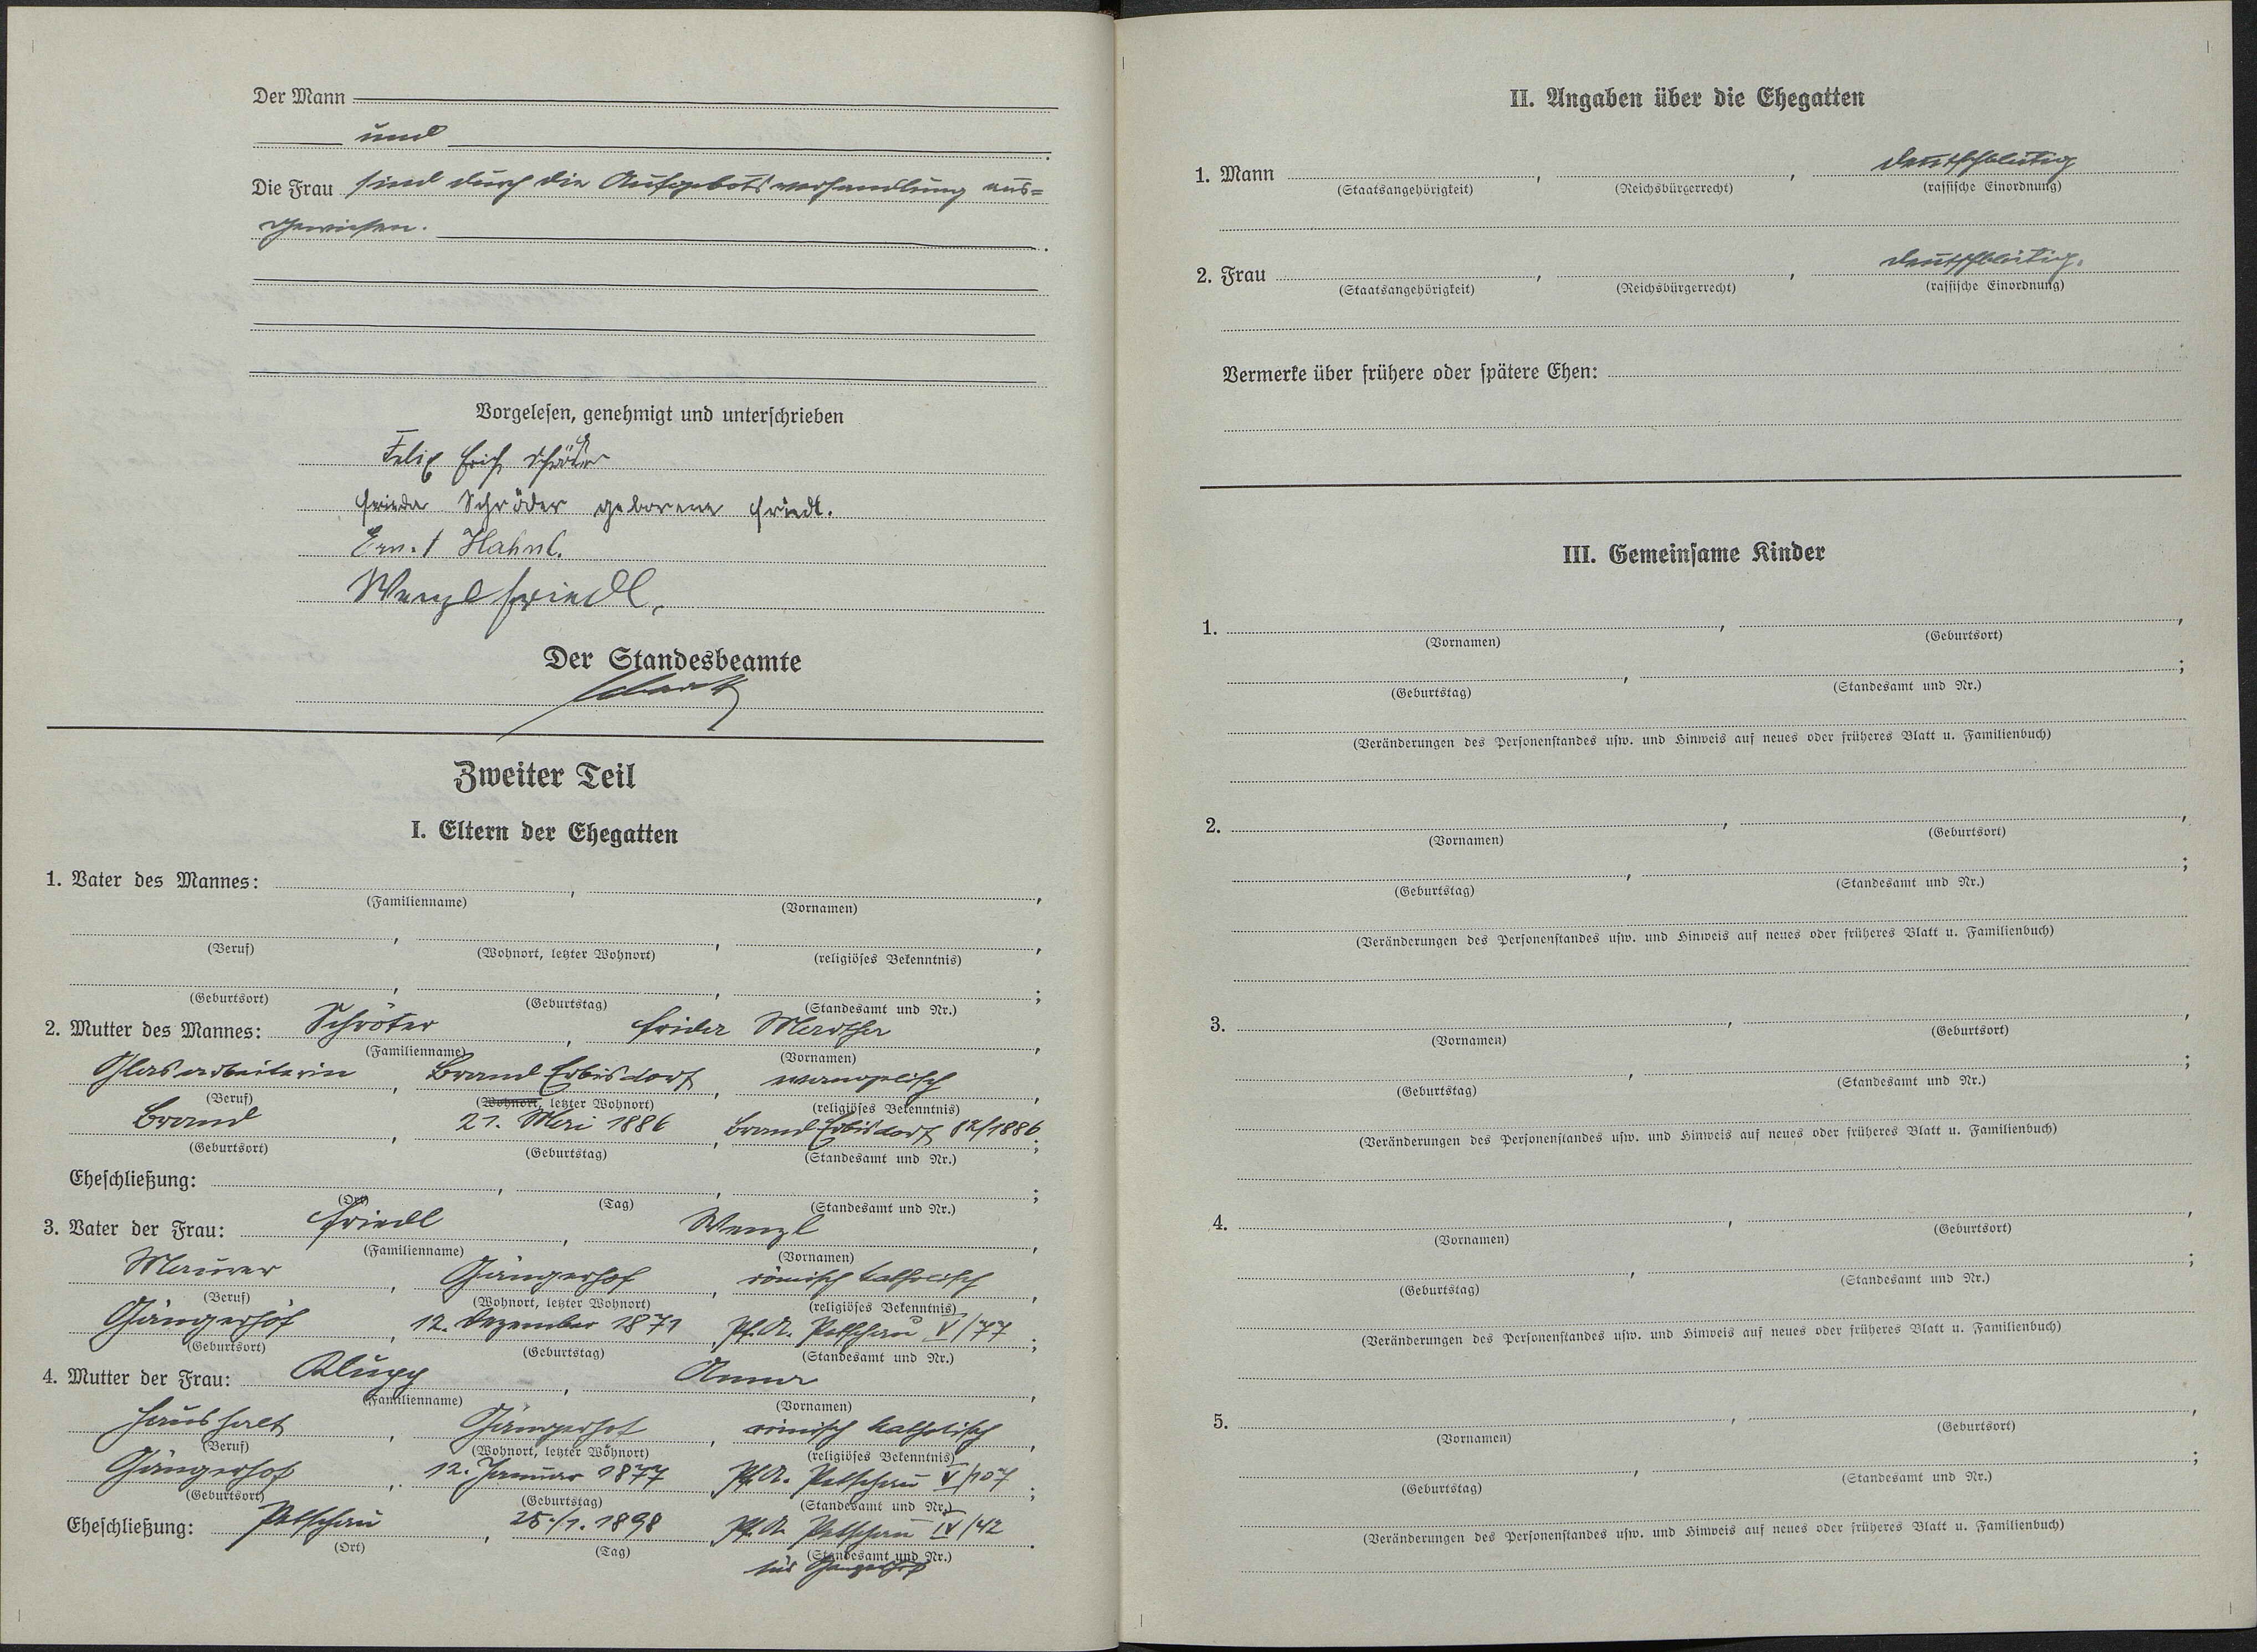 Der Mann
und
Die Frau sind durch die Aufgebotsverhandlung aus=
gewiesen.
Vorgelesen, genehmigt und unterschrieben
Felix Erich Schröter
Frieda Schröder geborene Friedl.
Ernst Hahnl.
Wenzl Friedl.
Der Standesbeamte
Zweiter Teil
I. Eltern der Ehegatten
1. Vater des Mannes: , ,
(Familienname) (Vornamen)
, , ,
(Beruf) (Wohnort, letzter Wohnort) (religiöses Bekenntnis)
, , ;
(Geburtsort) (Geburtstag) (Standesamt und Nr.)
2. Mutter des Mannes: Schröter , Frida Martha ,
(Familienname) (Vornamen)
Glasarbeiterin , Brand Erbisdorf , evangelisch ,
(Beruf) (Wohnort, letzter Wohnort) (religiöses Bekenntnis)
Brand , 21. Mai 1886 , Brand Erbisdorf 82/1886 ;
(Geburtsort) (Geburtstag) (Standesamt und Nr.)
Eheschließung: , , ;
(Ort) (Tag) (Standesamt und Nr.)
3. Vater der Frau: Friedl , Wenzl ,
(Familienname) (Vornamen)
Maurer , Gängerhof , römisch katholisch ,
(Beruf) (Wohnort, letzter Wohnort) (religiöses Bekenntnis)
Gängerhof , 12. Dezember 1871 , Pf. A. Petschau V/77 ;
(Geburtsort) (Geburtstag) (Standesamt und Nr.)
4. Mutter der Frau: Klupp , Anna ,
(Familienname) (Vornamen)
Haushalt , Gängerhof , römisch katholisch ,
(Beruf) (Wohnort, letzter Wohnort) (religiöses Bekenntnis)
Gängerhof , 12. Januar 1877 , Pf. A. Petschau V/107 ;
(Geburtsort) (Geburtstag) (Standesamt und Nr.)
Eheschließung: Petschau , 25./1. 1898 , Pf. A. Petschau IV/42 .
(Ort) (Tag) (Standesamt und Nr.)
für Gängerhof
II. Angaben über die Ehegatten
1. Mann , , deutschblütig
(Staatsangehörigkeit) (Reichsbürgerrecht) (rassische Einordnung)
2. Frau , , deutschblütig.
(Staatsangehörigkeit) (Reichsbürgerrecht) (rassische Einordnung)
Vermerke über frühere oder spätere Ehen:
III. Gemeinsame Kinder
1. , ,
(Vornamen) (Geburtsort)
, ;
(Geburtstag) (Standesamt und Nr.)
(Veränderungen des Personenstandes usw. und Hinweis auf neues oder früheres Blatt u. Familienbuch)
2. , ,
(Vornamen) (Geburtsort)
, ;
(Geburtstag) (Standesamt und Nr.)
(Veränderungen des Personenstandes usw. und Hinweis auf neues oder früheres Blatt u. Familienbuch)
3. , ,
(Vornamen) (Geburtsort)
, ;
(Geburtstag) (Standesamt und Nr.)
(Veränderungen des Personenstandes usw. und Hinweis auf neues oder früheres Blatt u. Familienbuch)
4. , ,
(Vornamen) (Geburtsort)
, ;
(Geburtstag) (Standesamt und Nr.)
(Veränderungen des Personenstandes usw. und Hinweis auf neues oder früheres Blatt u. Familienbuch)
5. , ,
(Vornamen) (Geburtsort)
, ;
(Geburtstag) (Standesamt und Nr.)
(Veränderungen des Personenstandes usw. und Hinweis auf neues oder früheres Blatt u. Familienbuch)